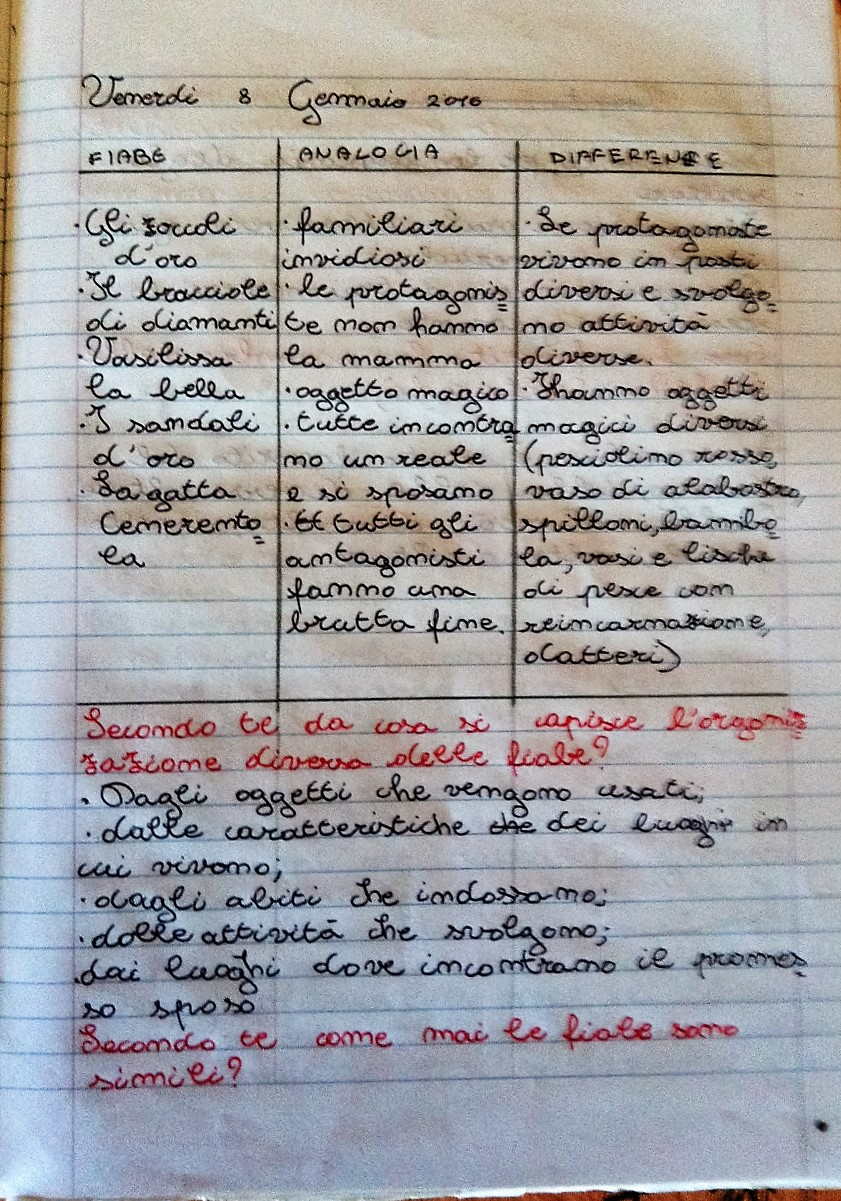 Venerdi 8 Gennaio 2010
FIABE
ANALOGIA
DIFFERENZE
· Gli zoccoli
d'oro
· Il bracciole
di diamanti
· Vasilissa
la bella
· I sandali
d'oro
· La gatta
Cenerento=
la
· familiari
invidiosi
· le protagonis=
te non hanno
la mamma
· oggetto magico
· tutte incontra
no un reale
e si sposano
· tutti gli
antagonisti
fanno una
brutta fine.
· Le protagoniste
vivono in posti
diversi e svolgo=
no attività
diverse.
· Ihanno oggetti
magici diversi
(pesciolino rosso,
vaso di alabastro,
spilloni, bambo=
la, vasi e lische
di pesce con
reincarnazione,
datteri)
Secondo te da cosa si capisce l'organiz=
zazione diversa delle fiabe?
· Dagli oggetti che vengono usati;
· dalle caratteristiche che dei luoghi in
cui vivono;
· dagli abiti che indossano;
· dalle attività che svolgono;
· dai luoghi dove incontrano il promes=
so sposo
Secondo te come mai le fiabe sono
simili?